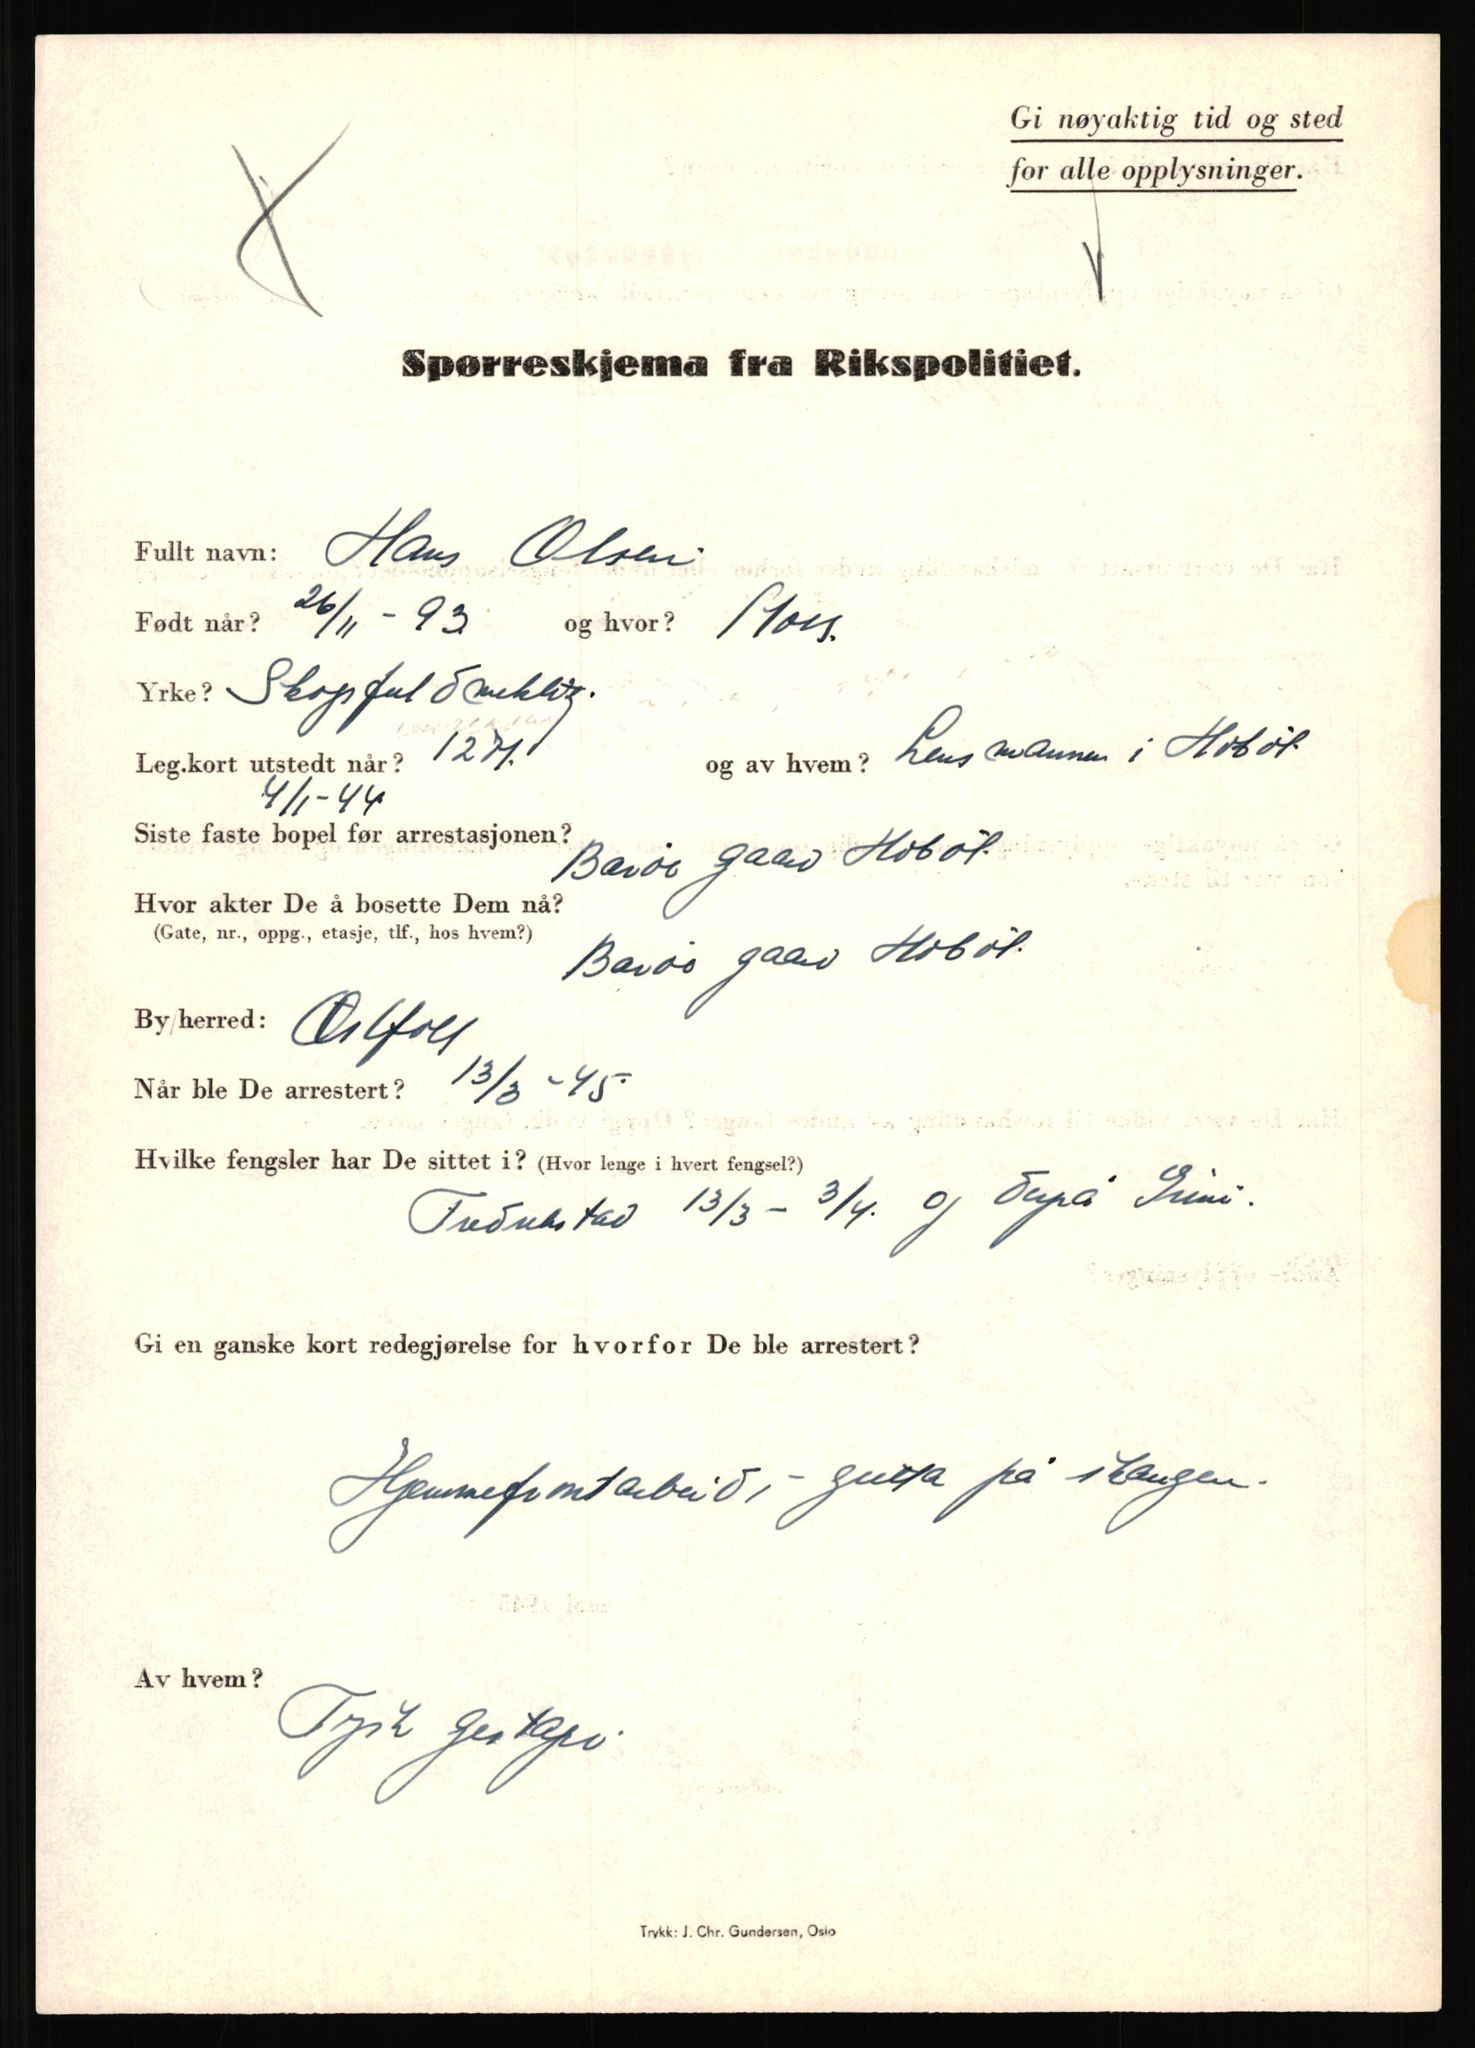 Gi nøyaktig tid og sted
for alle opplysninger.
Spørreskjema fra Rikspolitiet.
Fullt navn: Hans Olsen
Født når? 26/11 - 93 og hvor? Moss.
Yrke? Skogsfuldmektig.
Leg.kort utstedt når? 1271. og av hvem? Lensmannen i Hobøl.
4/1-44
Siste faste bopel før arrestasjonen? gaard Hobøl.
Hvor akter De å bosette Dem nå?
(Gate, nr., oppg., etasje, tlf., hos hvem?)
gaard Hobøl.
By/herred: Østfold
Når ble De arrestert? 13/3 -45.
Hvilke fengsler har De sittet i? (Hvor lenge i hvert fengsel?)
Fredrikstad 13/3 - 3/4. og derpå Grini.
Gi en ganske kort redegjørelse for hvorfor De ble arrestert?
Hjemmefrontarbeid, - gutta på skaugen.
Av hvem?
Tysk gestapo.
Trykk: J. Chr. Gundersen, Oslo